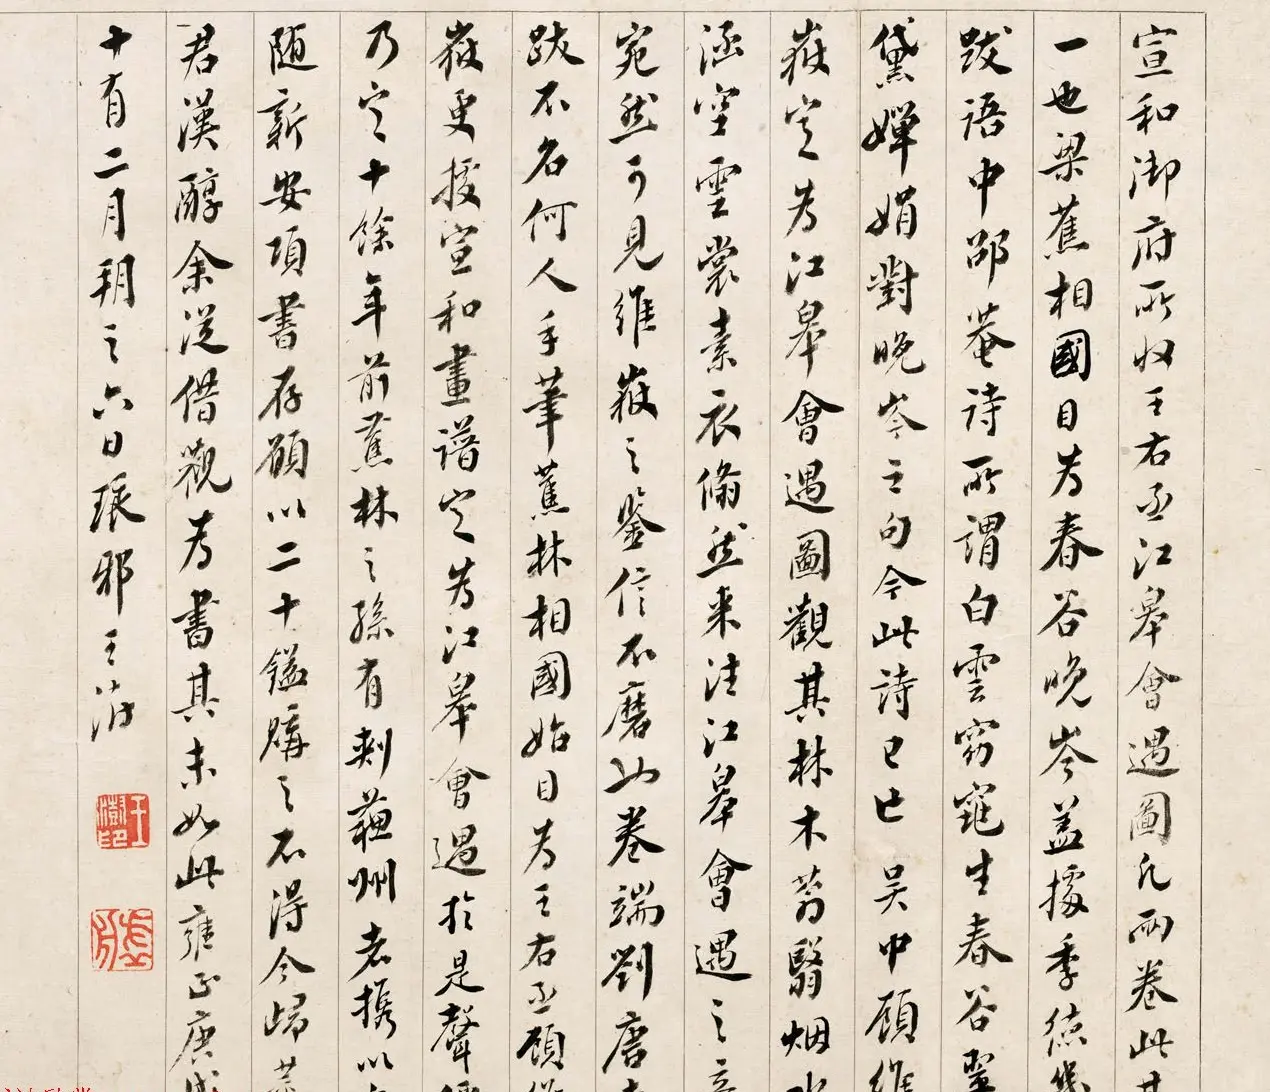 宣和御府所收王右丞江皋會遇圖凡兩卷此其
一也梁蕉相國目為春谷晚岑蓋據季德幾
跋語中邵菴詩所謂白雲窈窕生春谷翠
黛嬋娟對晚岑之句今此詩已亡吳中顧維
嶽定為江皋會遇圖觀其林木蓊翳烟水
涵空雲裳素衣翛然來往江皋會遇之意
宛然可見維嶽之鑒信不磨也卷端劉唐
跋不名何人手筆蕉林相國始目為王右丞顧維
嶽更按宣和畫譜定為江皋會遇於是聲價
乃定十餘年前蕉林之孫有刺蘇州者攜以
隨新安項書存願以二十鎰購之不得今歸
君漢醇余從借觀為書其末如此雍正庚戌
十有二月朔之六日琅邪王澍
王澍印
虛舟